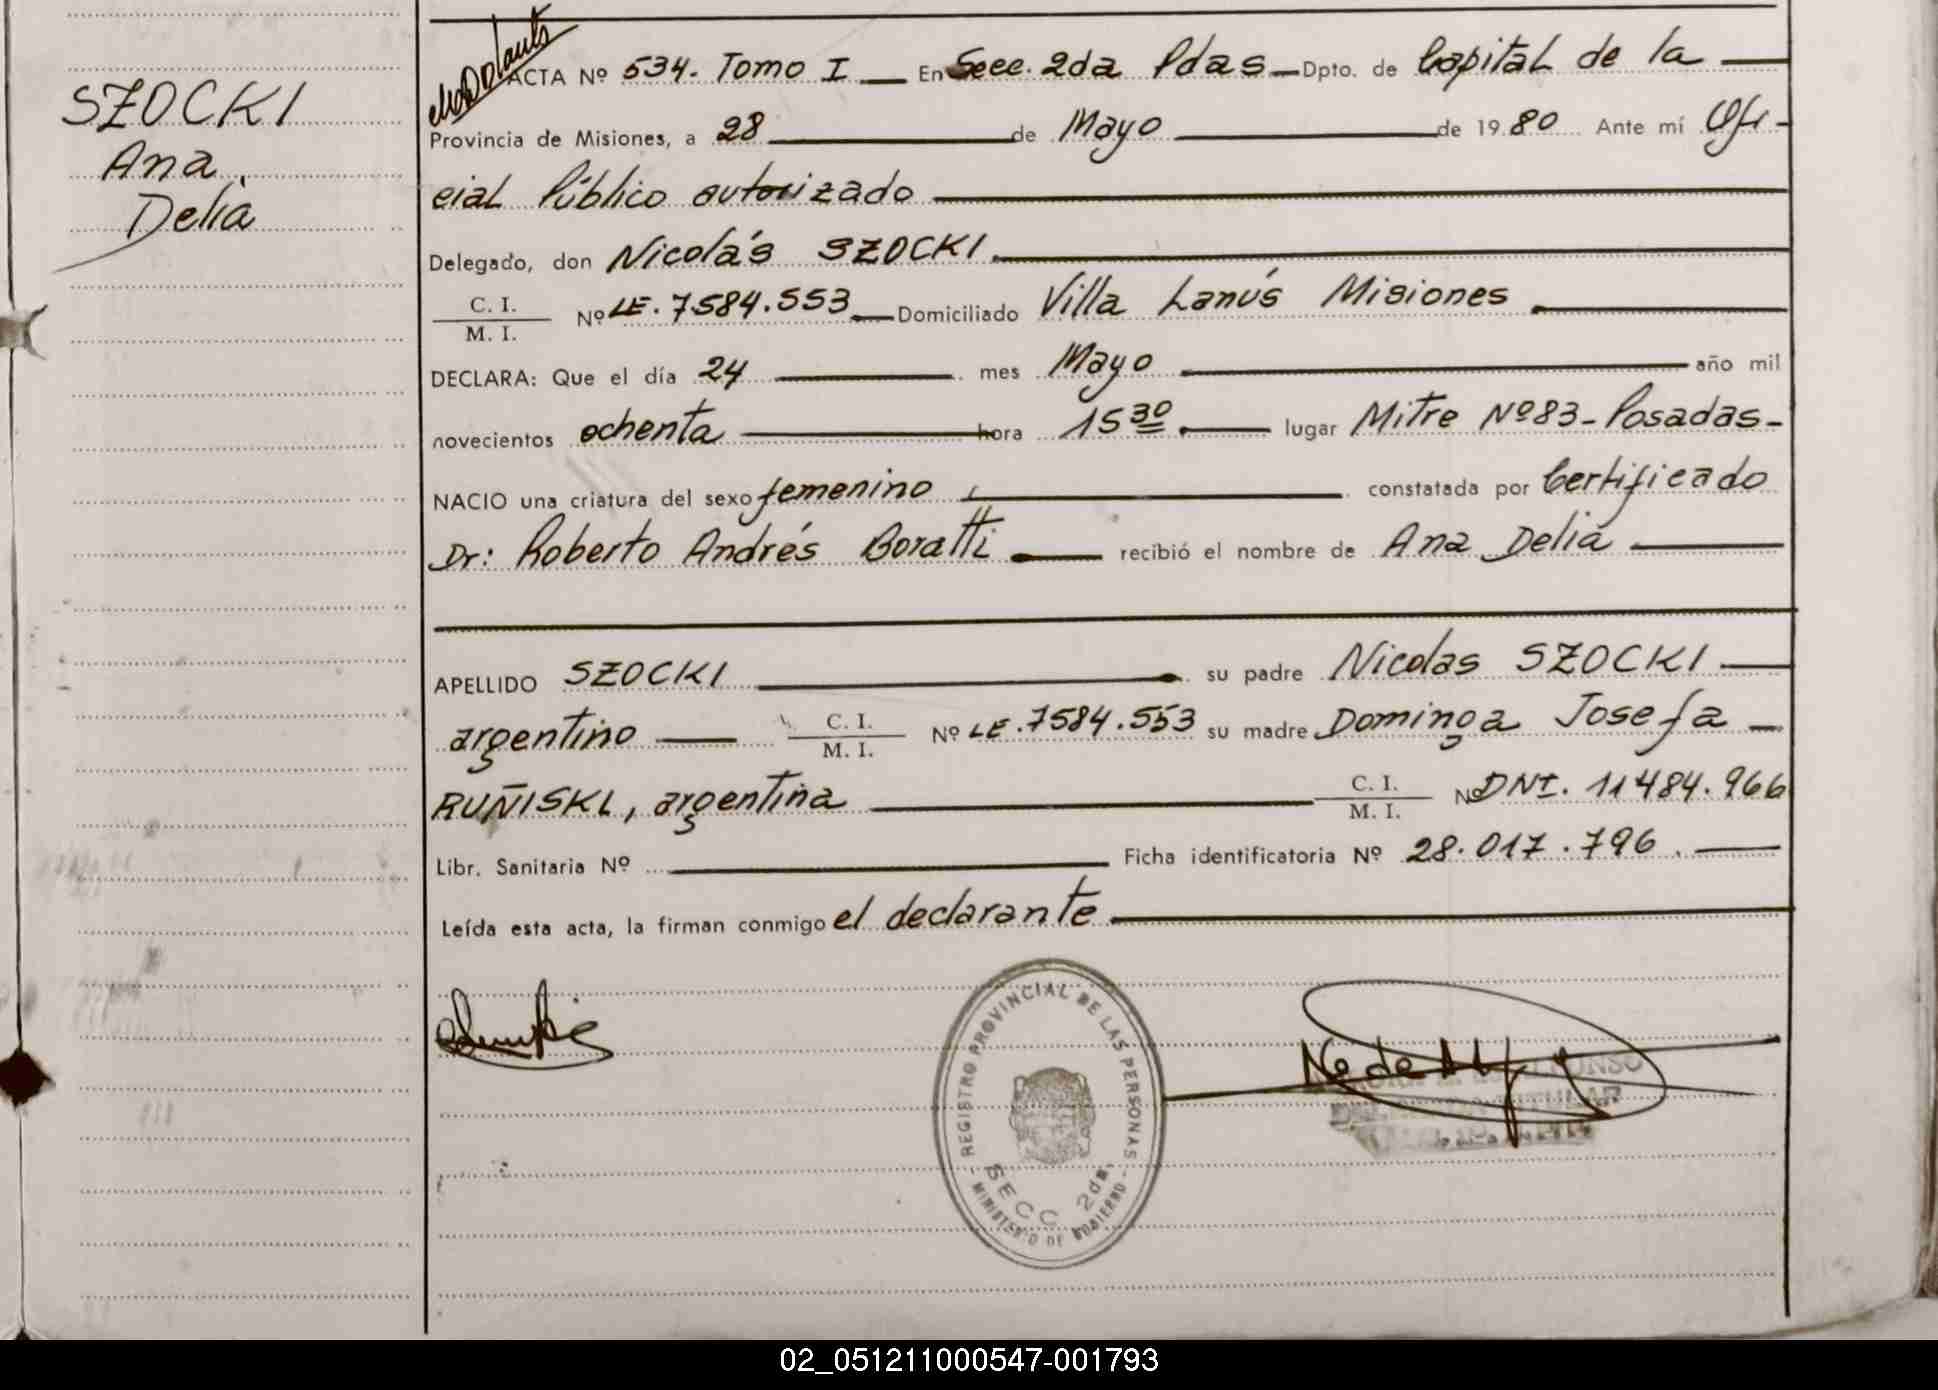 SZOCKI
Ana
Delia
ACTA Nº 534. Tomo I En Secc. 2da Pdas Dpto. de Capital de la
Provincia de Misiones, a 28 de Mayo de 1980 Ante mí Ofi-
cial Público autorizado
Delegado, don Nicolás SZOCKI
C. I.
M. I. Nº LE. 7584.553 Domiciliado Villa Lanús Misiones
DECLARA: Que el día 24 mes Mayo año mil
novecientos ochenta hora 15 30 lugar Mitre Nº 83 - Posadas -
NACIO una criatura del sexo femenino constatada por Certificado
Dr: Roberto Andrés Boratti recibió el nombre de Ana Delia
APELLIDO SZOCKI su padre Nicolas SZOCKI
argentino C. I.
M. I. Nº LE. 7584.553 su madre Dominga Josefa
RUÑISKI, argentina C. I.
M. I. Nº DNI. 11484.966
Libr. Sanitaria Nº Ficha identificatoria Nº 28.017.796.
Leída esta acta, la firman conmigo el declarante
REGISTRO PROVINCIAL DE LAS PERSONAS
SECC 2da,
- MINISTERIO DE GOBIERNO -
TITULAR
02_051211000547-001793